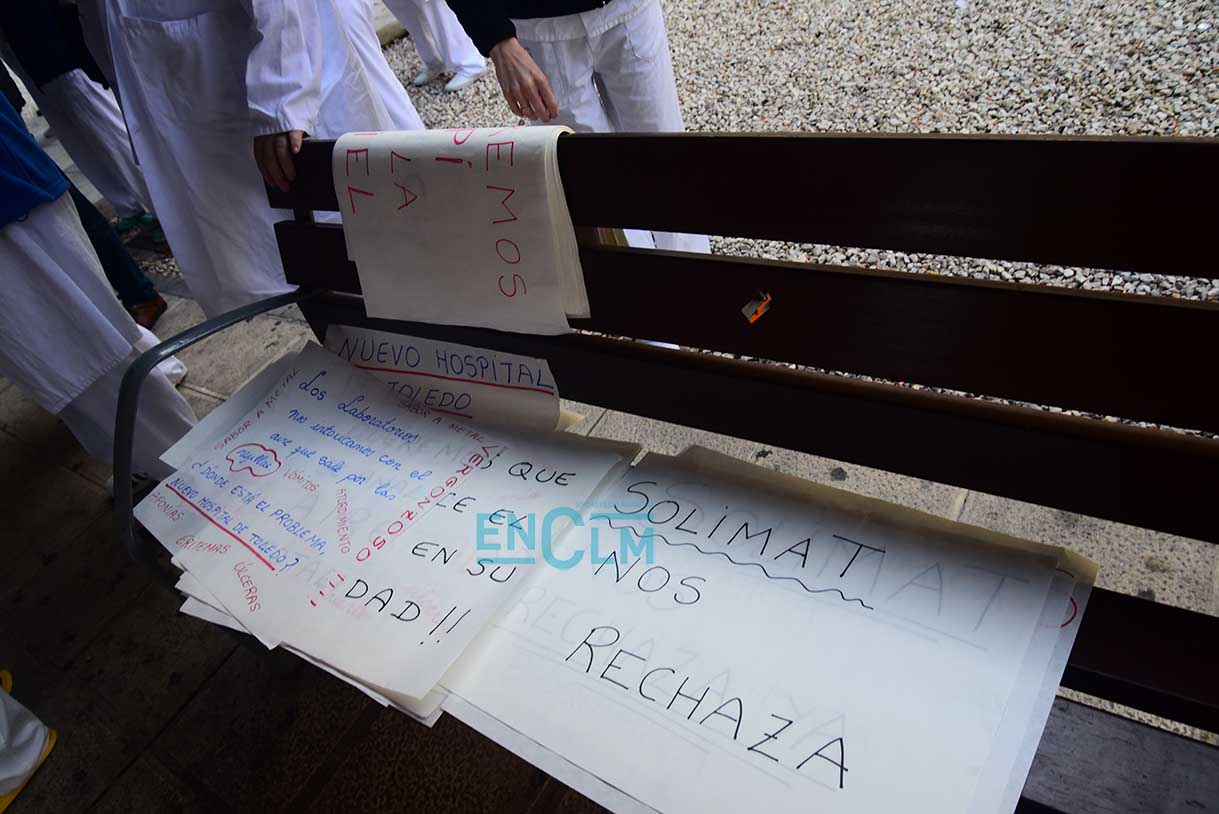 EMOS
DÍ
LA
EL
NUEVO HOSPITAL
TOLEDO
SABOR A METAL
SABOR A METAL
Los Laboratorios
nos intoxicamos con el
aire que sale por las
rejillas
VÓMITOS
¿DONDE ESTÁ EL PROBLEMA,
NUEVO HOSPITAL DE TOLEDO?
AFONIAS
ERITEMAS
ÚLCERAS
ATURDIMIENTO
VERGONZOSO
!!!
QUE
CE EL
EN SU
DAD!!
SOLIMAT
NOS
RECHAZA
ENCLM